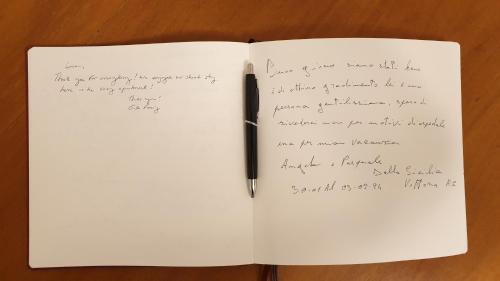 Thank you for everything! We enjoyed our short stay
here in the cosy apartment!
Thank you!
Buon giorno siamo stati bene
di ottimo gradimento lei è una
persona gentilissima, spero di
rivederci non per motivi di ospedale
ma per una vacanza
Angela e Pasquale
Dalla Sicilia
Vittoria RG